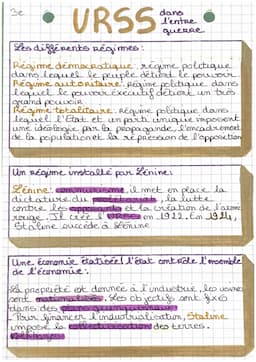 3e
URSS dans l'entre guerre
Les différents régimes :
Régime démocratique : régime politique
dans lequel le peuple détient le pouvoir
Régime autoritaire : régime politique dans
lequel le pouvoir exécutif détient un très
grand pouvoir
Régime totalitaire : régime politique dans
lequel l'État et un parti unique imposent
une idéologie par la propagande, l'encadrement
de la population et la répression de l'opposition
Un régime installé par Lénine :
Lénine : communisme, il met en place la
dictature du prolétariat, la lutte
contre les et la création de l'armée
rouge. Il crée l'URSS en 1922. En 1924,
Staline succède à Lénine
Une économie étatisée : l'état contrôle l'ensemble
de l'économie :
La propriété est donnée à l'industrie, les usines
sont nationalisées. Les objectifs sont fixés
dans des plans quinquennaux
Pour financer l'industrialisation, Staline
impose la collectivisation des terres.